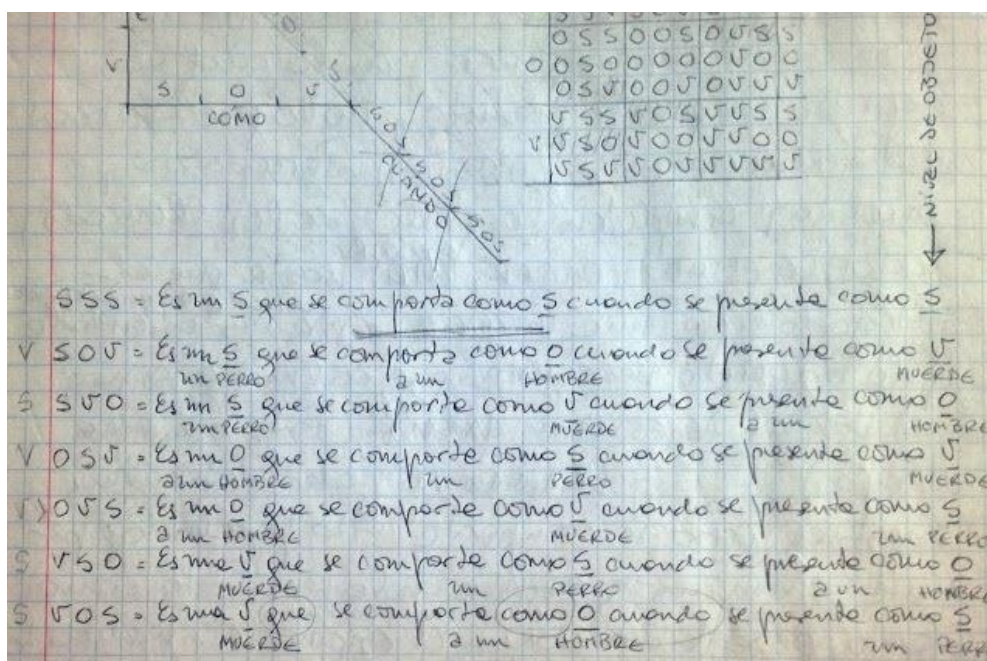 S O V
COMO
S O S
S O S
S O S
CUANDO
O S S O O S O V S S
O O S O O O O O V O O
O S V O O V O V V V
V S S V O S V V S S
V V S O V O O V V O O
V S V V O V V V V V
← NIVEL DE OBJETO
SSS = Es un S que se comporta como S cuando se presenta como S
V SOV = Es un S que se comporta como O cuando se presenta como V
un PERRO a un HOMBRE MUERDE
S SVO = Es un S que se comporta como V cuando se presenta como O
un PERRO MUERDE a un HOMBRE
V OSV = Es un O que se comporta como S cuando se presenta como V
a un HOMBRE un PERRO MUERDE
V) OVS = Es un O que se comporta como V cuando se presenta como S
a un HOMBRE MUERDE un PERRO
S VSO = Es una V que se comporta como S cuando se presenta como O
MUERDE un PERRO a un HOMBRE
S VOS = Es una V que se comporta como O cuando se presenta como S
MUERDE a un HOMBRE un PERRO